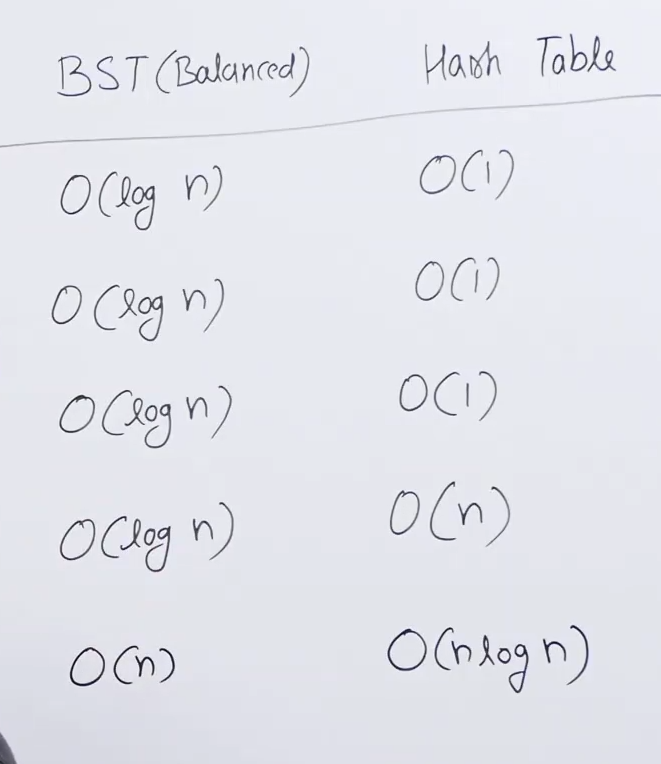 BST (Balanced) Hash Table
O(log n) O(1)
O(log n) O(1)
O(log n) O(1)
O(log n) O(n)
O(n) O(n log n)